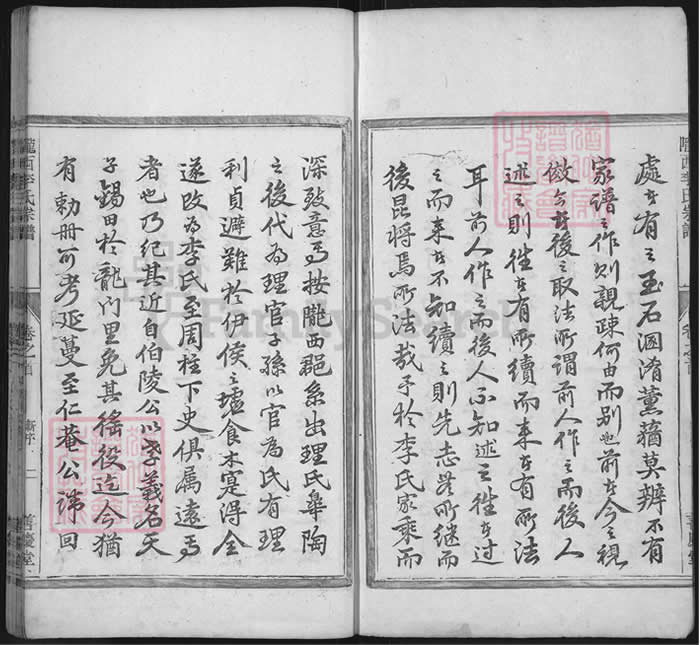 處者有之玉石溷淆薰蕕莫辨不有
家譜之作則親疎何由而别也前者今之視
傲今者後之取法所謂前人作之而後人
述之則往者有所續而来者有所法
耳前人作之而後人不知述之往者過
之而来者不知續之則先志無所継而
後昆将焉所法哉予於李氏家乘而
深致意焉按隴西郡系出理氏臯陶
之後代為理官子孫以官為氏有理
利貞避難於伊侯之墟食木寔得全
遂改為李氏至周柱下史俱属遠焉
者也乃紀其近自伯陵公以孝義名天
子錫田於龍门里免其徭役迄今猶
有勅冊可考延蔓至仁菴公諱回
隴西李氏宗譜
卷之首
新序
一
善慶堂